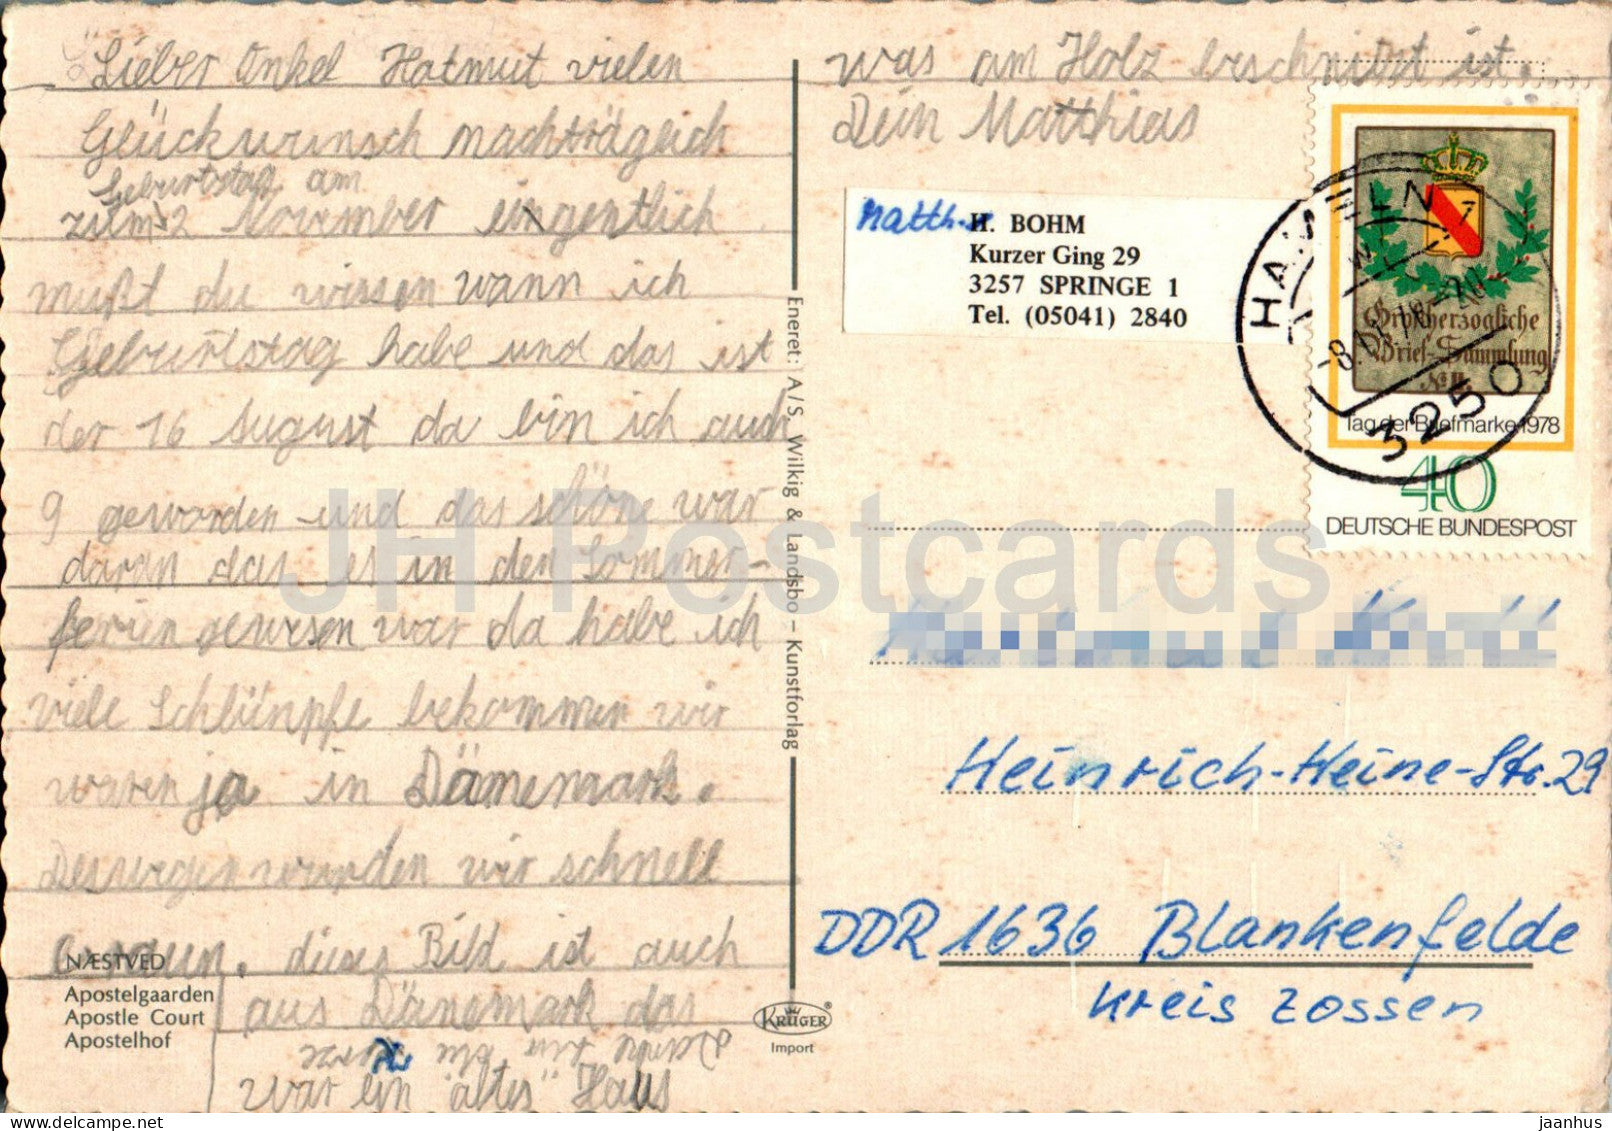 Lieber Onkel Hatmut vielen
Glückwunsch nachträglich
Geburtstag am
zum 2 November eigentlich
mußt du wissen wann ich
Geburtstag habe und das ist
der 16 August da bin ich auch
9 geworden und das schöne war
daran das es in den Sommer-
ferien gewesen war da habe ich
viele Schlümpfe bekommen wir
waren ja in Dänemark.
Deswegen wurden wir schnell
dieses Bild ist auch
aus Dänemark das
war ein altes Haus
was am Holz beschnitzt ist.
Dein Matthias
NÆSTVED
Apostelgaarden
Apostle Court
Apostelhof
Eneret: A/S. Wilkig & Landsbo – Kunstforlag
KRÜGER®
Import
Matth.
H. BOHM
Kurzer Ging 29
3257 SPRINGE 1
Tel. (05041) 2840
HAMELN 1
3250
Grosherzogliche
Brief-Sammlung
Tag der Briefmarke 1978
40
DEUTSCHE BUNDESPOST
Heinrich-Heine-Str. 29
DDR 1636 Blankenfelde
Kreis Zossen
JH Postcards
jaanhus